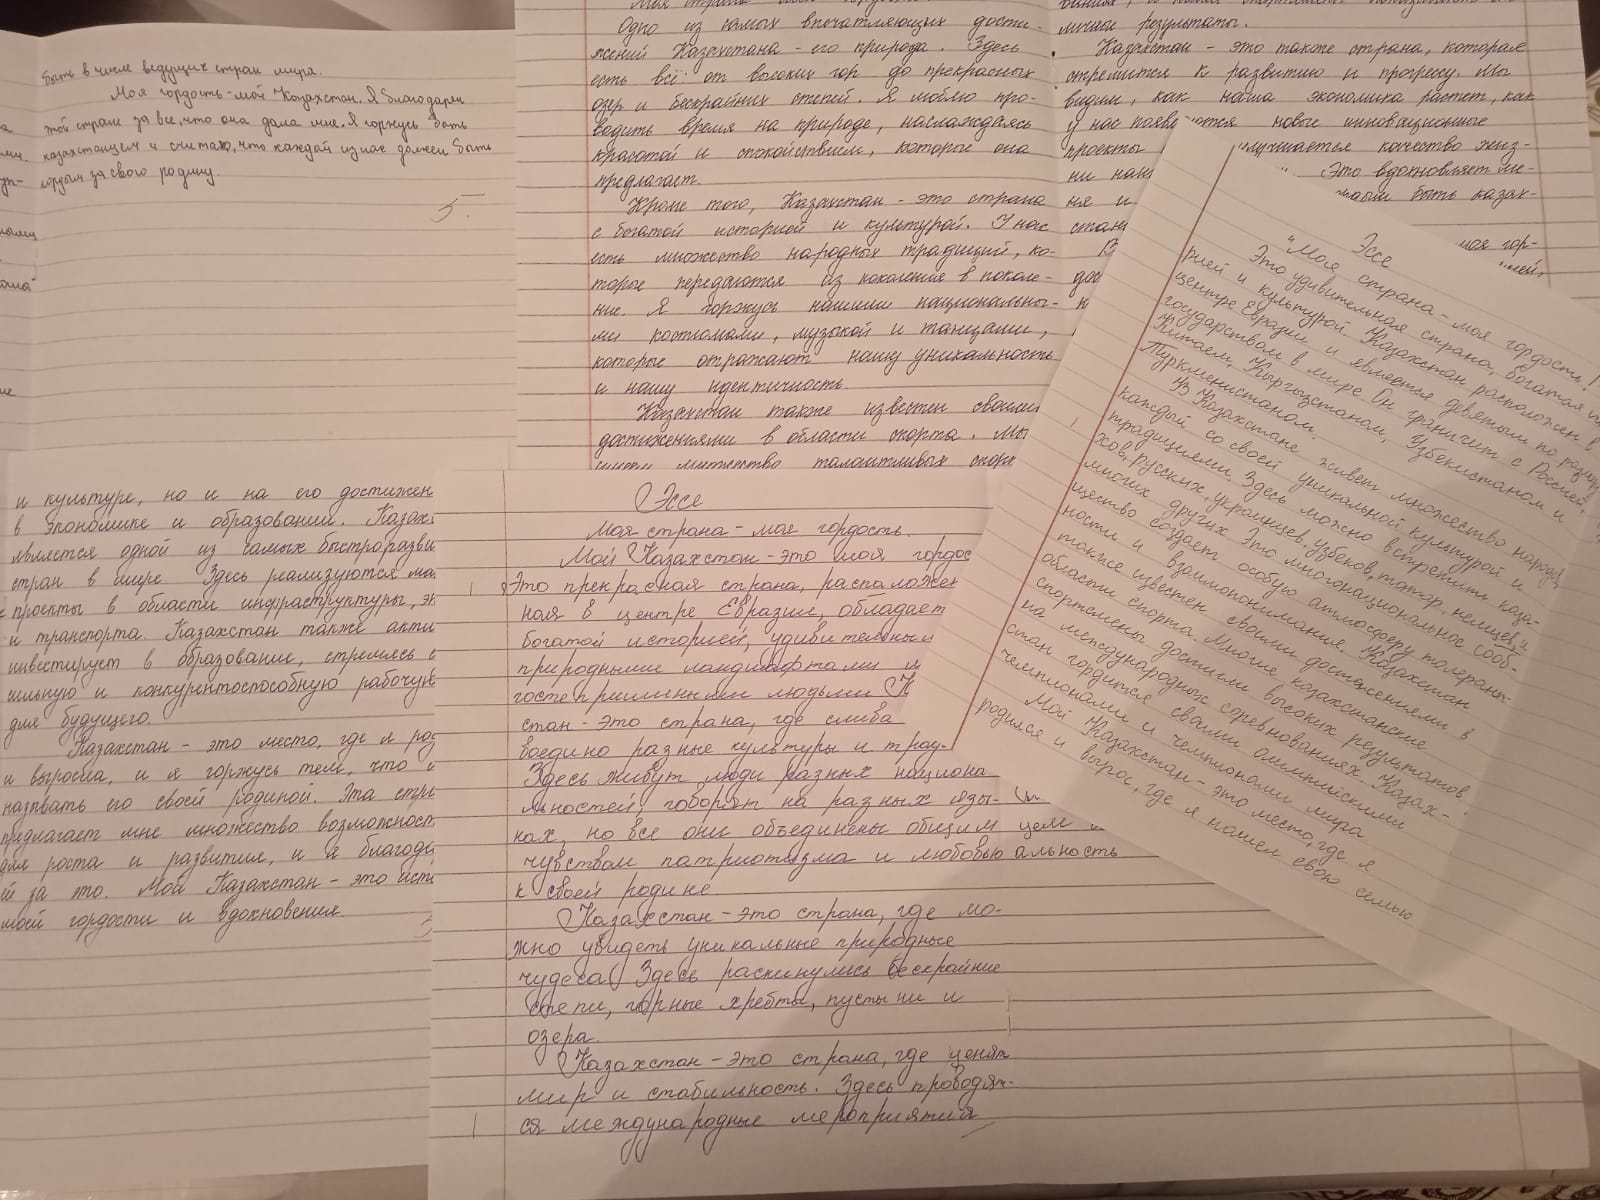 быть в числе ведущих стран мира.
Моя гордость - мой Казахстан. Я благодарен
этой стране за все, что она дала мне. Я горжусь быть
казахстанцем и считаю, что каждый из нас должен быть
гордым за свою родину.
5.
Одно из самых впечатляющих дости-
жений Казахстана - его природа. Здесь
есть всё от высоких гор до прекрасных
озер и бескрайних степей. Я люблю про-
водить время на природе, наслаждаясь
красотой и спокойствием, которые она
предлагает.
Кроме того, Казахстан - это страна
с богатой историей и культурой. У нас
есть множество народных традиций, ко-
торые передаются из поколения в поколе-
ние. Я горжусь нашими национальны-
ми костюмами, музыкой и танцами,
которые отражают нашу уникальность
и нашу идентичность.
Казахстан также известен своими
достижениями в области спорта. Мы
имеем множество талантливых спор
личные результаты.
Казахстан - это также страна, которая
стремится к развитию и прогрессу. Мы
видим, как наша экономика растет, как
у нас появ ются новые инновационные
проекты улучшается качество жиз-
ни наш Это вдохновляет ме-
ня и быть казах-
стан
моя гор-
Эссе
"Моя страна - моя гордость!
Это удивительная страна, богатая ис
рией и культурой. Казахстан расположен в
центре Евразии и является девятым по разме
государством в мире. Он граничит с Россией,
Китаем, Кыргызстаном, Узбекистаном и
Туркменистаном.
Из Казахстане живет множество народов,
каждый со своей уникальной культурой и
традициями. Здесь можно встретить каза-
хов, русских, украинцев, узбеков, татар, немцев и
многих других. Это многонациональное сооб-
щество создает особую атмосферу толерант-
ности и взаимопонимания. Казахстан
также известен своими достижениями в
области спорта. Многие казахстанские
спортсмены достигли высоких результатов
на международных соревнованиях. Казах-
стан гордится своими олимпийскими
чемпионами и чемпионами мира
Мой Казахстан - это место, где я
родился и вырос, где я нашел свою семью
и культуре, но и на его достижен
в экономике и образовании. Казах
является одной из самых быстроразви
стран в мире. Здесь реализуются
проекты в области инфраструктуры, эн
и транспорта. Казахстан также акти
инвестирует в образование, стремясь с
сильную и конкурентоспособную рабочую
для будущего.
Казахстан - это место, где я род
и выросла, и я горжусь тем, что
называть его своей родиной. Эта стра
предлагает мне множество возможност
для роста и развития, и я благода
ей за это. Мой Казахстан - это исто
моей гордости и вдохновения.
Эссе
Моя страна - моя гордость.
Мой Казахстан - это моя гордос
Это прекрасная страна, расположен
ная в центре Евразии, обладает
богатой историей, удивительным
природными ландшафтами и
гостеприимными людьми. К
стан - это страна, где слива
воедино разные культуры и тра
Здесь живут люди разных национа
льностей, говорят на разных язы-
ках, но все они объединены общим целе
чувством патриотизма и любовью альность
к своей родине.
Казахстан - это страна, где мо-
жно увидеть уникальные природные
чудеса. Здесь раскинулись бескрайние
степи, горные хребты, пустыни и
озера.
Казахстан - это страна, где ценят
мир и стабильность. Здесь проводят-
ся международные мероприятия